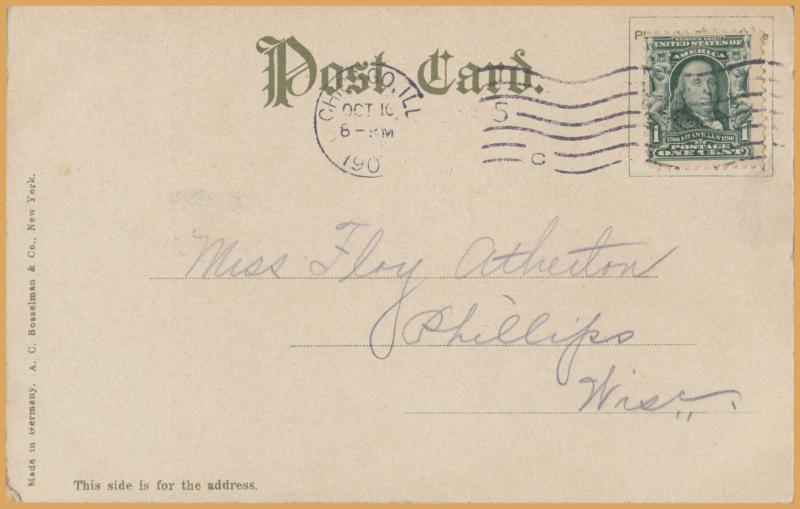 Post Card.
SERIES 1902
UNITED STATES OF
AMERICA
1 1706 FRANKLIN 1790 1
POSTAGE
ONE CENT
CHICAGO, ILL
OCT 10
8 - PM
190
5
C
Miss Floy Atherton
Phillips
Wisc.
Made in Germany. A. C. Bosselman & Co., New York.
This side is for the address.